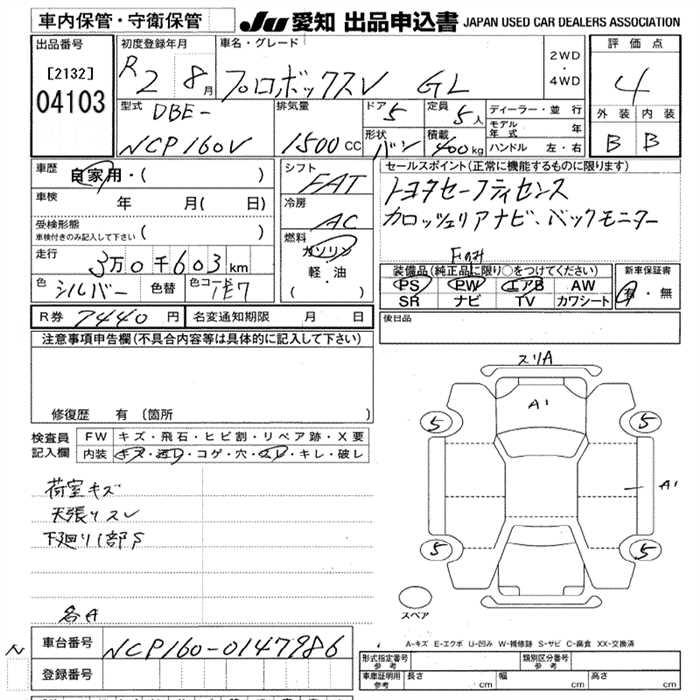 車内保管・守衛保管
JU 愛知 出品申込書 JAPAN USED CAR DEALERS ASSOCIATION
出品番号 初度登録年月 車名・グレード 評価点
[2132] R2 8月 プロボックスV GL 2WD・4WD 4
04103
型式 排気量 ドア 定員 ディーラー・並行 外装 内装
DBE- 5 5人 モデル年式 年
NCP160V 1500cc 形状 バン 積載 400kg ハンドル 左・右 B B
車歴 自家用・( ) シフト FAT セールスポイント(正常に機能するものに限ります)
車検 年 月( 日) 冷房 AC トヨタセーフティセンス
受検形態 車検付きのみ記入して下さい ( ) 燃料 ガソリン カロッツェリアナビ、バックモニター
走行 3万0千603km 軽・油
( ) 装備品(純正品に限り○をつけてください) 新車保証書
色 シルバー 色替 色コード PS PW エアB AW 有・無
SR ナビ TV カワシート
R券 7440円 名変通知期限 月 日 後日品
注意事項申告欄(不具合内容等は具体的に記入して下さい)
スリA
A1
5 5
A1
5 5
スペア
修復歴 有(箇所 )
検査員記入欄 FW キズ・飛石・ヒビ割・リペア跡・X要
内装 キズ・汚レ・コゲ・穴・スレ・キレ・破レ
荷室キズ
天張リスレ
下廻リ1部S
各A
A-キズ E-エクボ U-凹み W-補修跡 S-サビ C-腐食 XX-交換済
N 車台番号 NCP160-0147986 形式指定番号 参考 類別区分番号 参考
登録番号 車庫証明用 参考 長さ cm 幅 cm 高さ cm